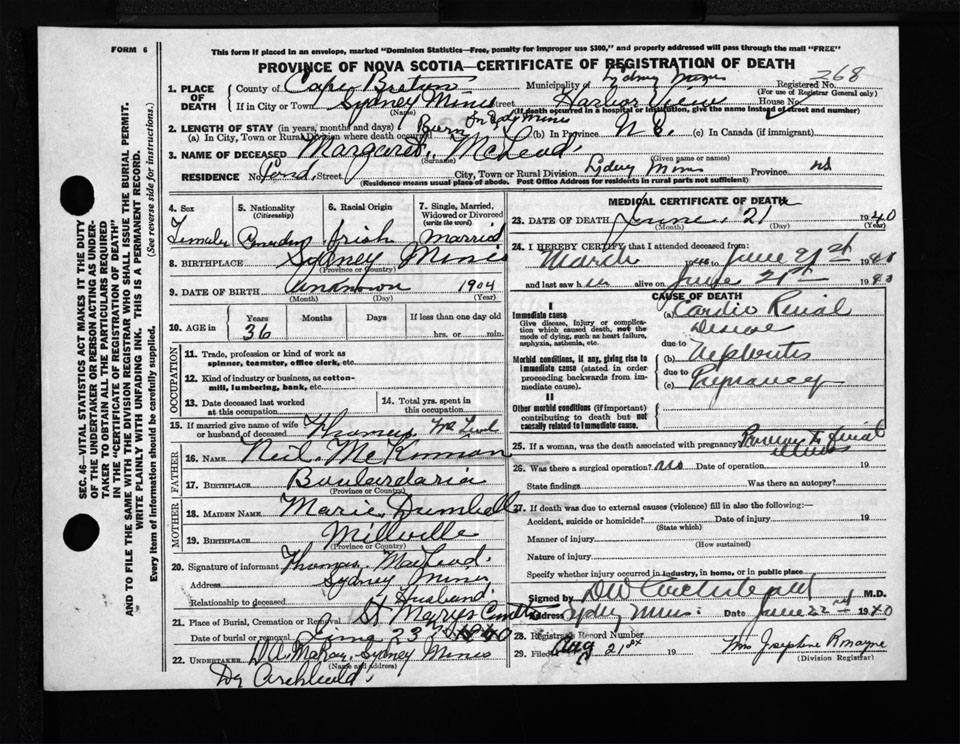 FORM 6
This form if placed in an envelope, marked "Dominion Statistics—Free, penalty for improper use $300," and properly addressed will pass through the mail "FREE"
PROVINCE OF NOVA SCOTIA—CERTIFICATE OF REGISTRATION OF DEATH
268
1. PLACE OF DEATH
County of Cape Breton Municipality of Sydney Mines Registered No.
(For use of Registrar General only)
If in City or Town Sydney Mines Street Harbor View House No.
(Name) (If death occurred in a hospital or institution, give the name instead of street and number)
2. LENGTH OF STAY (in years, months and days)
(a) In City, Town or Rural Division where death occurred Born in Sydy Mines (b) In Province N.S. (c) In Canada (if immigrant)
3. NAME OF DECEASED Margaret McLeod
(Surname) (Given name or names)
RESIDENCE No. Pond Street City, Town or Rural Division Sydney Mines Province NS
(Residence means usual place of abode. Post Office Address for residents in rural parts not sufficient)
4. Sex Female
5. Nationality (Citizenship)
6. Racial Origin Irish
7. Single, Married, Widowed or Divorced (write the word) Married
8. BIRTHPLACE Sydney Mines
(Province or Country)
9. DATE OF BIRTH Unknown 1904
(Month) (Day) (Year)
10. AGE in Years Months Days If less than one day old
36 hrs. or min.
OCCUPATION
11. Trade, profession or kind of work as spinner, teamster, office clerk, etc.
12. Kind of industry or business, as cotton-mill, lumbering, bank, etc.
13. Date deceased last worked at this occupation
14. Total yrs. spent in this occupation
15. If married give name of wife or husband of deceased Thomas McLeod
FATHER
16. Name Neil McKinnon
17. BIRTHPLACE Boulardaria
(Province or Country)
MOTHER
18. MAIDEN NAME Marie
19. BIRTHPLACE Millville
(Province or Country)
20. Signature of informant Thomas MacLeod
Address Sydney Mines
Relationship to deceased Husband
21. Place of Burial, Cremation or Removal St Marys
Date of burial or removal 23 1940
22. UNDERTAKER D.A. McKay, Sydney Mines
(Name and address)
MEDICAL CERTIFICATE OF DEATH
23. DATE OF DEATH June 21 1940
(Month) (Day) (Year)
24. I HEREBY CERTIFY that I attended deceased from:
March to June 21st 1940
and last saw h er alive on June 21st 1940
CAUSE OF DEATH
I
Immediate cause
Give disease, injury or complication which caused death, not the mode of dying, such as heart failure, asphyxia, asthenia, etc.
(a) Cardio Renal Disease
due to
Morbid conditions, if any, giving rise to immediate cause (stated in order proceeding backwards from immediate cause).
(b) Nephritis
due to
(c) Pregnancy
II
Other morbid conditions (if important) contributing to death but not causally related to immediate cause.
25. If a woman, was the death associated with pregnancy?
26. Was there a surgical operation? no Date of operation 19
State findings Was there an autopsy?
27. If death was due to external causes (violence) fill in also the following:—
Accident, suicide or homicide? Date of injury 19
(State which)
Manner of injury
(How sustained)
Nature of injury
Specify whether injury occurred in industry, in home, or in public place
Signed by DW Archibald M.D.
Address Sydney Mines Date June 22nd 1940
28. Registrar's Record Number
29. Filed Aug 21st 19 Mrs Josephine Romayne
(Division Registrar)
Dr Archibald
SEC. 46—VITAL STATISTICS ACT MAKES IT THE DUTY OF THE UNDERTAKER OR PERSON ACTING AS UNDERTAKER TO OBTAIN ALL THE PARTICULARS REQUIRED IN THE "CERTIFICATE OF REGISTRATION OF DEATH" AND TO FILE THE SAME WITH THE DIVISION REGISTRAR WHO SHALL ISSUE THE BURIAL PERMIT.
WRITE PLAINLY WITH UNFADING INK. THIS IS A PERMANENT RECORD.
Every item of information should be carefully supplied. (See reverse side for instructions.)